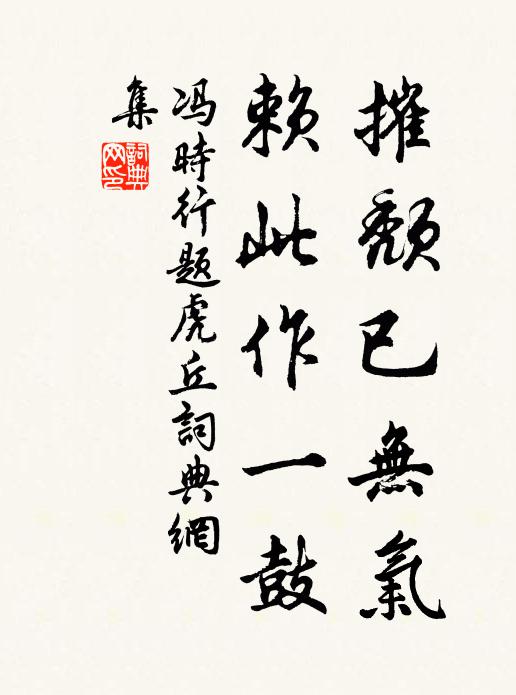 摧頹已無氣
賴此作一鼓
冯時行題虎丘詞典網
集
詞典网印